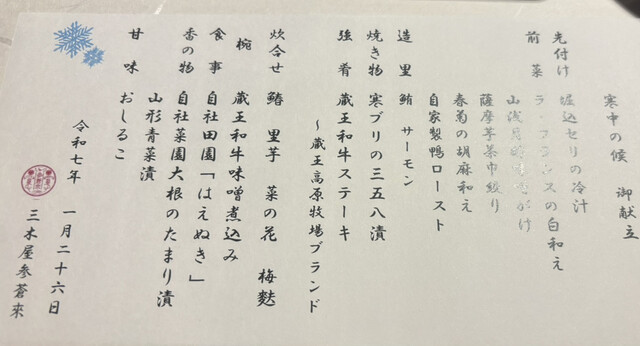 寒中の候 御献立
先付け 堀込セリの冷汁
前菜 ラ・フランスの白和え
山浅月
がけ
薩摩芋茶巾絞り
春菊の胡麻和え
自家製鴨ロースト
造里 鮪 サーモン
焼き物 寒ブリの三五八漬
強肴 蔵王和牛ステーキ
～蔵王高原牧場ブランド
炊合せ 鰆 里芋 菜の花 梅麩
椀 蔵王和牛味噌煮込み
食事 自社田園「はえぬき」
香の物 自社菜園大根のたまり漬
山形青菜漬
甘味 おしるこ
令和七年 一月二十六日
三木屋参蒼来